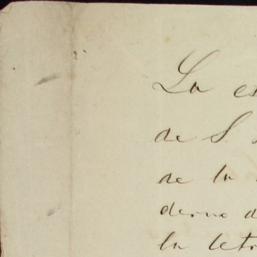 La es
de S.
de la
derno d
la letr